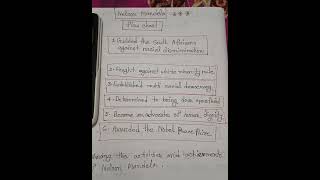 Nelson Mandela
Flow chart
1. Guided the South Africans
against racial discrimination
2. Fought against white minority rule.
3. Established multi racial democracy.
4. Determined to bring down apartheid
5. Became an advocate of human dignity
6. Awarded the Nobel Peace Prize.
the activities and achievements
Nelson Mandela.